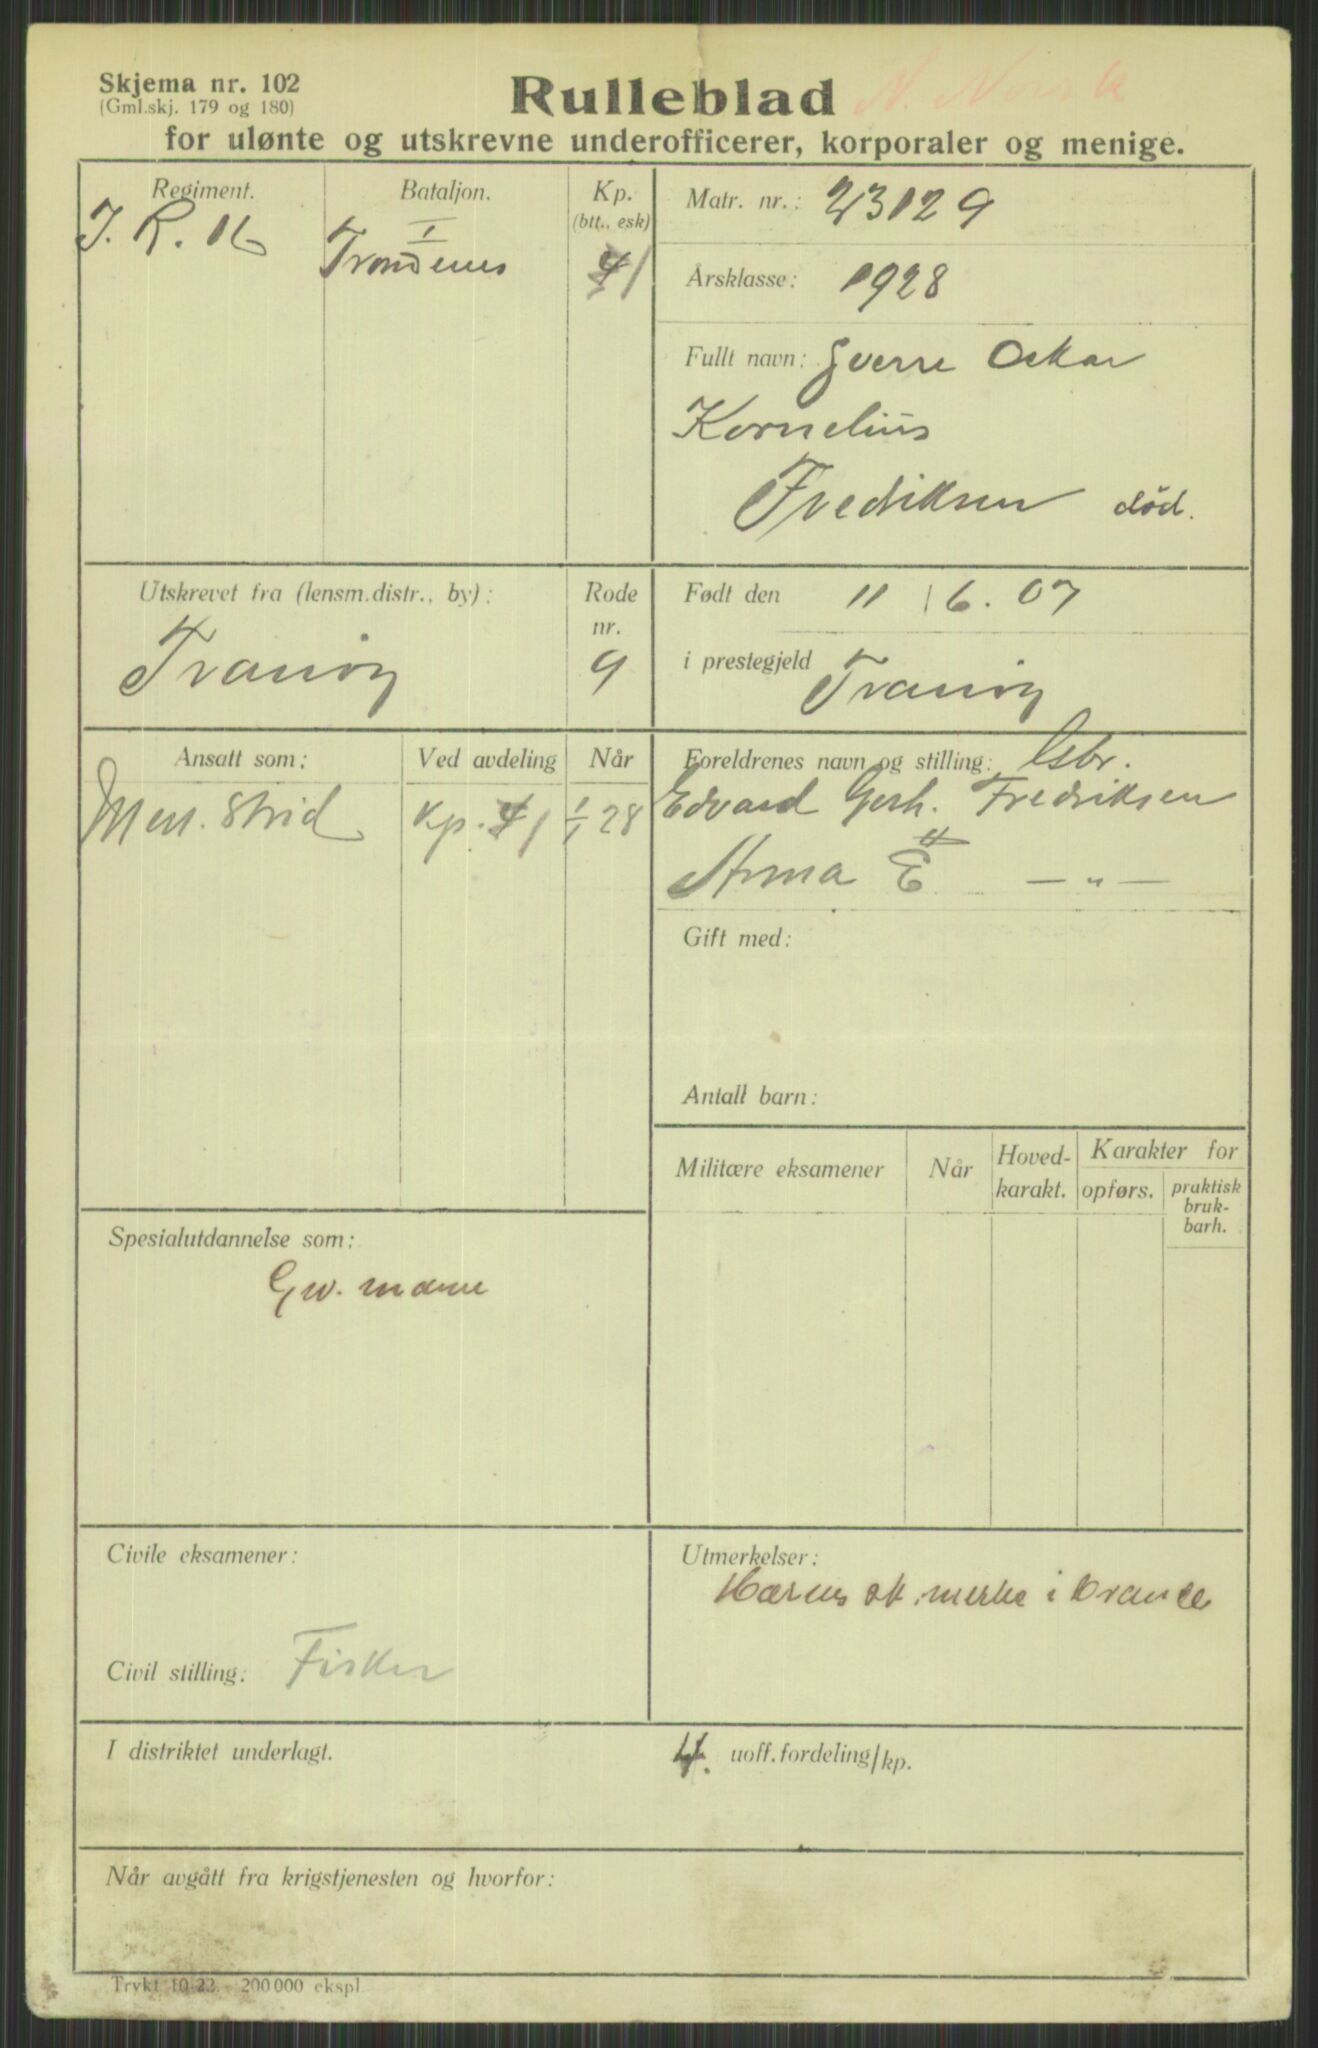 Skjema nr. 102
(Gml.skj. 179 og 180)
Rulleblad
for ulønte og utskrevne underofficerer, korporaler og menige.
Regiment.
Bataljon.
Kp.
(btt., esk)
J. R. 16
I
Trondenes
1
Matr. nr.: 23129
Årsklasse: 1928
Fullt navn: Sverre Oskar
Kornelius
Fredriksen død.
Utskrevet fra (lensm.distr., by):
Rode
nr.
Tranøy
9
Født den 11/6. 07
i prestegjeld Tranøy
Ansatt som:
Ved avdeling
Når
Men. Strid
Kp. 41
1/1 28
Foreldrenes navn og stilling: Gbr.
Edvard Gerh. Fredriksen
Anna E — „ —
Gift med:
Antall barn:
Militære eksamener
Når
Hoved-
karakt.
Karakter for
opførs.
praktisk
bruk-
barh.
Spesialutdannelse som:
Gw. mann
Civile eksamener:
Civil stilling: Fisker
Utmerkelser:
Hærens sk. merke i bronce
I distriktet underlagt.
4. uoff.fordeling/kp.
Når avgått fra krigstjenesten og hvorfor:
Trykt 10-22 - 200 000 ekspl.